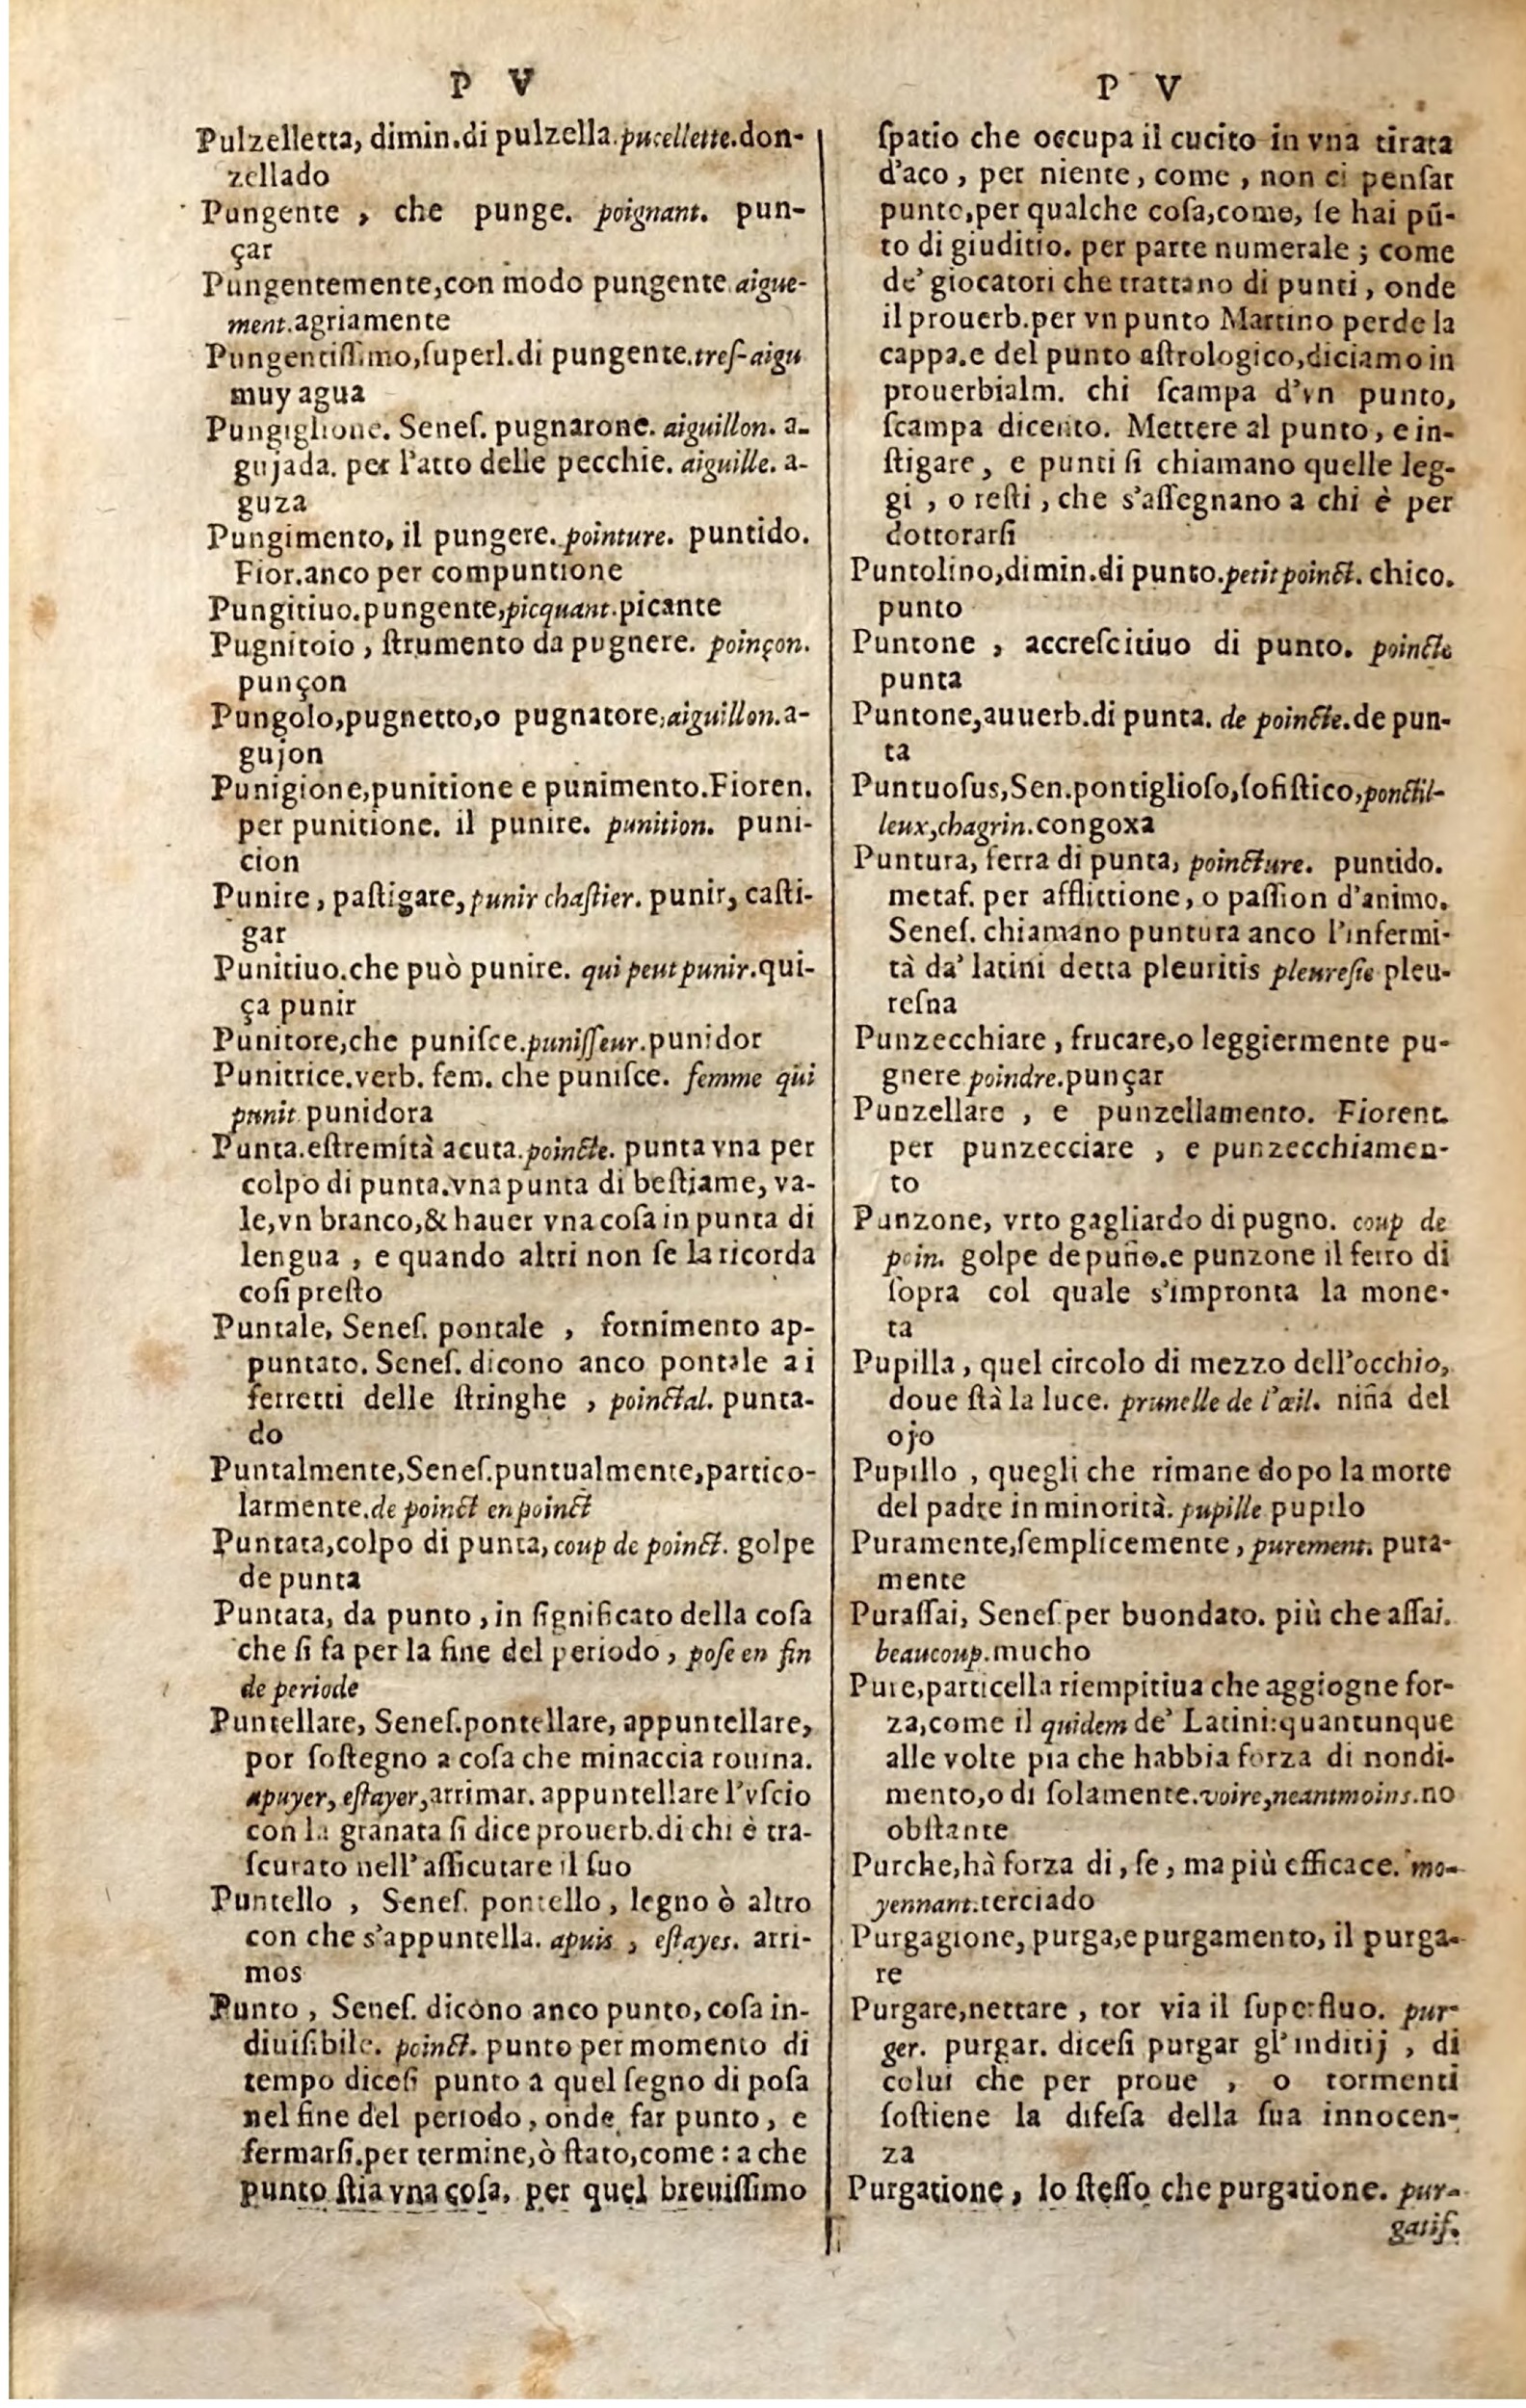 P V
Pulzelletta, dimin.di pulzella.pucellette.don-
zellado
Pungente , che punge. poignant. pun-
çar
Pungentemente,con modo pungente.aigue-
ment.agriamente
Pungentiſſimo,ſuperl.di pungente.treſ-aigu
muy agua
Pungiglione. Seneſ. pugnarone. aiguillon. a-
gujada. per l'atto delle pecchie. aiguille. a-
guza
Pungimento, il pungere. pointure. puntido.
Fior.anco per compuntione
Pungitiuo.pungente,picquant.picante
Pugnitoio , ſtrumento da pugnere. poinçon.
punçon
Pungolo,pugnetto,o pugnatore,aiguillon.a-
gujon
Punigione,punitione e punimento.Fioren.
per punitione. il punire. punition. puni-
cion
Punire , paſtigare, punir chaſtier. punir, caſti-
gar
Punitiuo.che può punire. qui peut punir.qui-
ça punir
Punitore,che puniſce.puniſſeur.punidor
Punitrice.verb. fem. che puniſce. femme qui
punit punidora
Punta.eſtremità acuta.poincte. punta vna per
colpo di punta.vna punta di beſtiame, va-
le,vn branco,& hauer vna coſa in punta di
lengua , e quando altri non ſe la ricorda
coſi preſto
Puntale, Seneſ. pontale , fornimento ap-
puntato. Seneſ. dicono anco pontale ai
ferretti delle ſtringhe , poinctal. punta-
do
Puntalmente,Seneſ.puntualmente,partico-
larmente.de poinct en poinct
Puntata,colpo di punta, coup de poinct. golpe
de punta
Puntata, da punto , in ſignificato della coſa
che ſi fa per la fine del periodo , poſe en fin
de periode
Puntellare, Seneſ.pontellare, appuntellare,
por ſoſtegno a coſa che minaccia rouina.
apuyer, eſtayer,arrimar. appuntellare l'vſcio
con la granata ſi dice prouerb.di chi è tra-
ſcurato nell' aſſicutare il ſuo
Puntello , Seneſ. pontello , legno ò altro
con che s'appuntella. apuis , eſtayes. arri-
mos
Punto , Seneſ. dicono anco punto, coſa in-
diuiſibile. poinct. punto per momento di
tempo diceſi punto a quel ſegno di poſa
nel fine del periodo , onde far punto , e
fermarſi.per termine,ò ſtato,come : a che
punto ſtia vna coſa, per quel breuiſſimo
P V
ſpatio che occupa il cucito in vna tirata
d'aco , per niente , come , non ci penſar
punto,per qualche coſa,come, ſe hai pū-
to di giuditio. per parte numerale ; come
de' giocatori che trattano di punti , onde
il prouerb.per vn punto Martino perde la
cappa.e del punto aſtrologico,diciamo in
prouerbialm. chi ſcampa d'vn punto,
ſcampa dicento. Mettere al punto , e in-
ſtigare , e punti ſi chiamano quelle leg-
gi , o teſti , che s'aſſegnano a chi è per
dottorarſi
Puntolino,dimin.di punto.petit poinct. chico.
punto
Puntone , accreſcitiuo di punto. poincte
punta
Puntone,auuerb.di punta. de poincte.de pun-
ta
Puntuoſus,Sen.pontiglioſo,ſofiſtico,ponctil-
leux,chagrin.congoxa
Puntura, ferra di punta, poincture. puntido.
metaf. per afflittione , o paſſion d'animo.
Seneſ. chiamano puntura anco l'infermi-
tà da' latini detta pleuritis pleureſie pleu-
reſna
Punzecchiare , frucare,o leggiermente pu-
gnere poindre.punçar
Punzellare , e punzellamento. Fiorent.
per punzecciare , e punzecchiamen-
to
Punzone, vrto gagliardo di pugno. coup de
poin. golpe de puño.e punzone il ferro di
ſopra col quale s'impronta la mone-
ta
Pupilla , quel circolo di mezzo dell'occhio,
doue ſtà la luce. prunelle de l'œil. niña del
ojo
Pupillo , quegli che rimane dopo la morte
del padre in minorità. pupille pupilo
Puramente,ſemplicemente , purement. pura-
mente
Puraſſai, Seneſ per buondato. più che aſſai.
beaucoup.mucho
Pure,particella riempitiua che aggiogne for-
za,come il quidem de' Latini:quantunque
alle volte pia che habbia forza di nondi-
mento,o di ſolamente.voire,neantmoins.no
obſtante
Purche,hà forza di , ſe , ma più efficace. mo-
yennant.terciado
Purgagione, purga,e purgamento, il purga-
re
Purgare,nettare , tor via il ſuperfluo. pur-
ger. purgar. diceſi purgar gl'inditij , di
colui che per proue , o tormenti
ſoſtiene la difeſa della ſua innocen-
za
Purgatione, lo ſteſſo che purgatione. pur-
gatif.